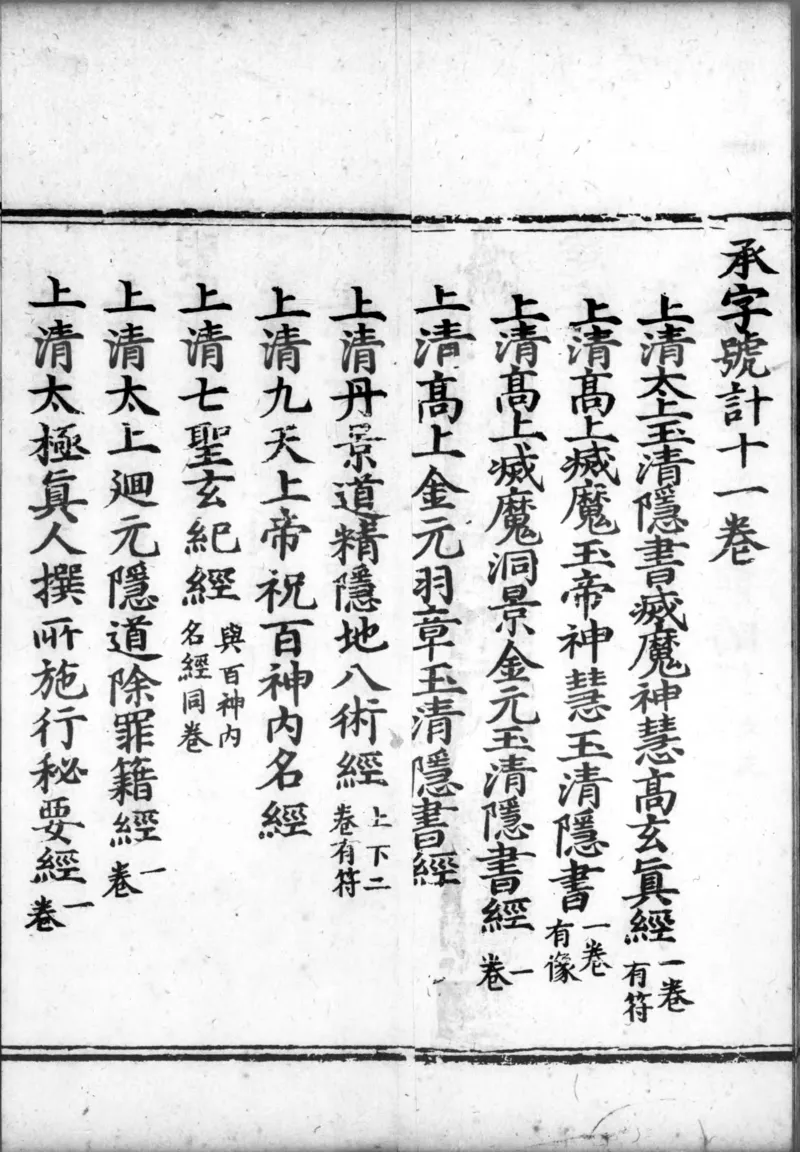 承字號計十一卷
上清太上玉清隱書㓕魔神慧高玄眞經一卷有符
上清髙上㓕魔玉帝神慧玉清隱書一卷有像
上清髙上㓕魔洞景金元玉清隱書經一卷
上清髙上金元羽章玉清隱書經
上清丹景道精隱地八術經上下二卷有符
上清九天上帝祝百神內名經
上清七聖玄紀經與百神內名經同卷
上清太上迴元隱道除罪籍經一卷
上清太極眞人撰所施行秘要經一卷